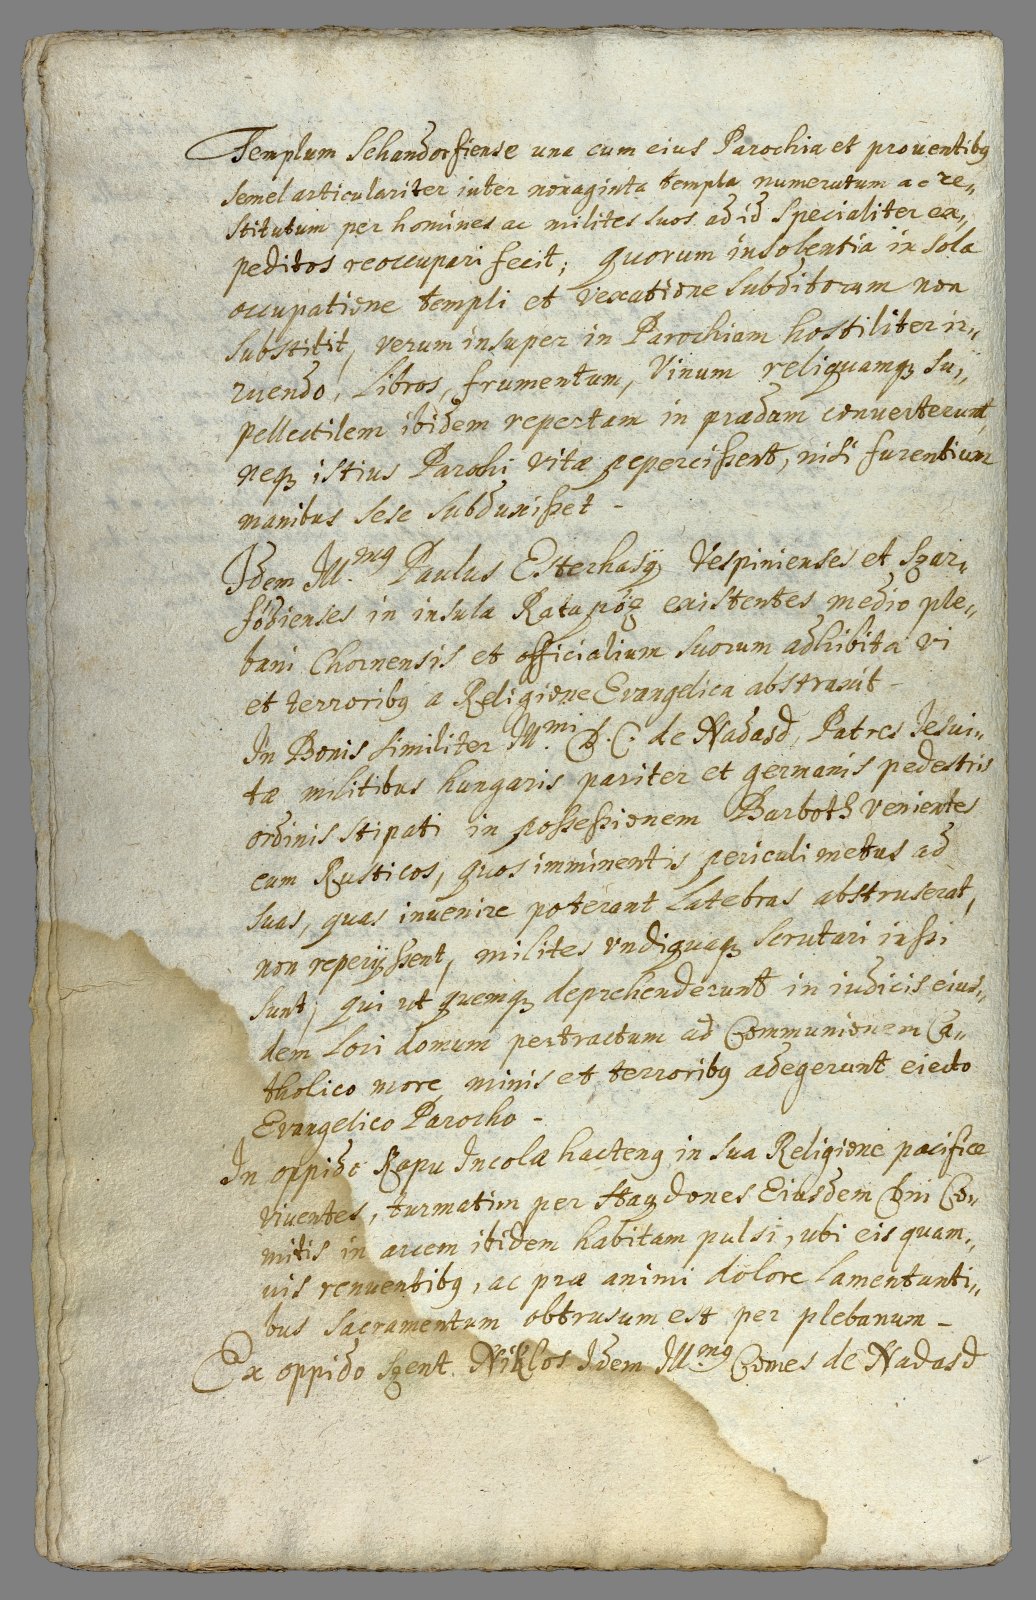 Templum Schandorfiense una cum eius Parochia et prouentibꝯ
semel articulariter inter nonaginta templa numeratum ac re„
stitutum per homines ac milites suos ad id specialiter ex„
peditos reoccupari fecit; quorum insolentia in sola
occupatione templi et vexatione subditorum non
substitit, verum insuper in Parochiam hostiliter ir„
ruendo, Libros, frumentum, Vinum reliquamqꝫ su„
pellectilem ibidem repertam in prædam conuerterunt,
neqꝫ istius Parochi vitæ pepercißent, nisi furentium
manibus sese subduxißet –
Idem Ill.mꝯ Paulus Esterhasÿ Vespinienses et Szar„
födienses in insula Ratapöz existentes medio ple„
bani Chornensis et officialium suorum adhibita vi
et terroribꝯ a Religione Evangelica abstraxit –
In Bonis similiter Ill.mi D. C. de Nadasd, Patres Iesui„
tæ militibus hungaris pariter et germanis pedestris
ordinis stipati in poßeßionem Barboth venientes
cum Rusticos, quos imminentis periculi metus ad
suas, quas invenire poterant Latebras abstruserat,
non reperijßent, milites vndiquaqꝫ scrutari iußi
sunt, qui ut quemqꝫ deprehenderunt in iudicis eius„
dem Loci domum pertractum ad Communionem Ca„
tholico more minis et terroribꝯ adegerunt eiecto
Evangelico Parocho –
In oppido Kapu Incolæ hactenꝯ in sua Religione pacifice
viuentes, turmatim per Haydones Eiusdem Dni Co„
mitis in arcem ibidem habitam pulsi, ubi eis quam„
uis renuentibꝯ, ac præ animi dolore lamentanti„
bus Sacramentum obtrusum est per plebanum –
Ex oppido Szent Niklos Idem Ill.mꝯ Comes de Nadasd